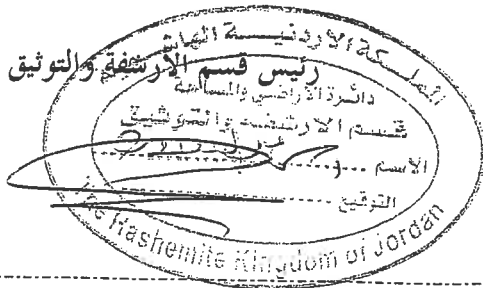 المملكة الاردنيـــة الهاشمية
رئيس قسم الأرشفة والتوثيق
دائـرة الأراضي والمساحة
قسم الارشفة والتوثيق
الاسم
التوقيع
The Hashemite Kingdom of Jordan